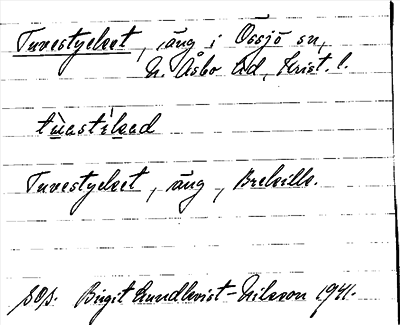 Tuvestycket, äng i Össjö sn,
N. Åsbo hd, Krist. l.
tùastıkad
Tuvestycket, äng, Brekille.
SOS. Birgit Lundkvist-Nilsson 1941.